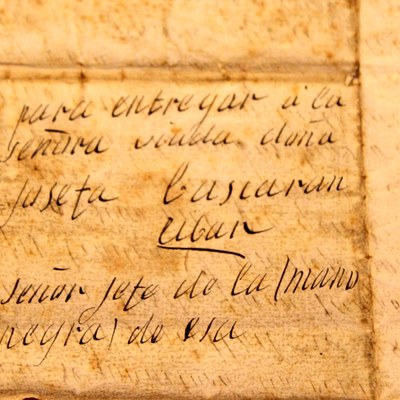 para entregar á la
señora viuda doña
josefa Cascaran
Eibar
señor jefe de la (mano
negra) de esa